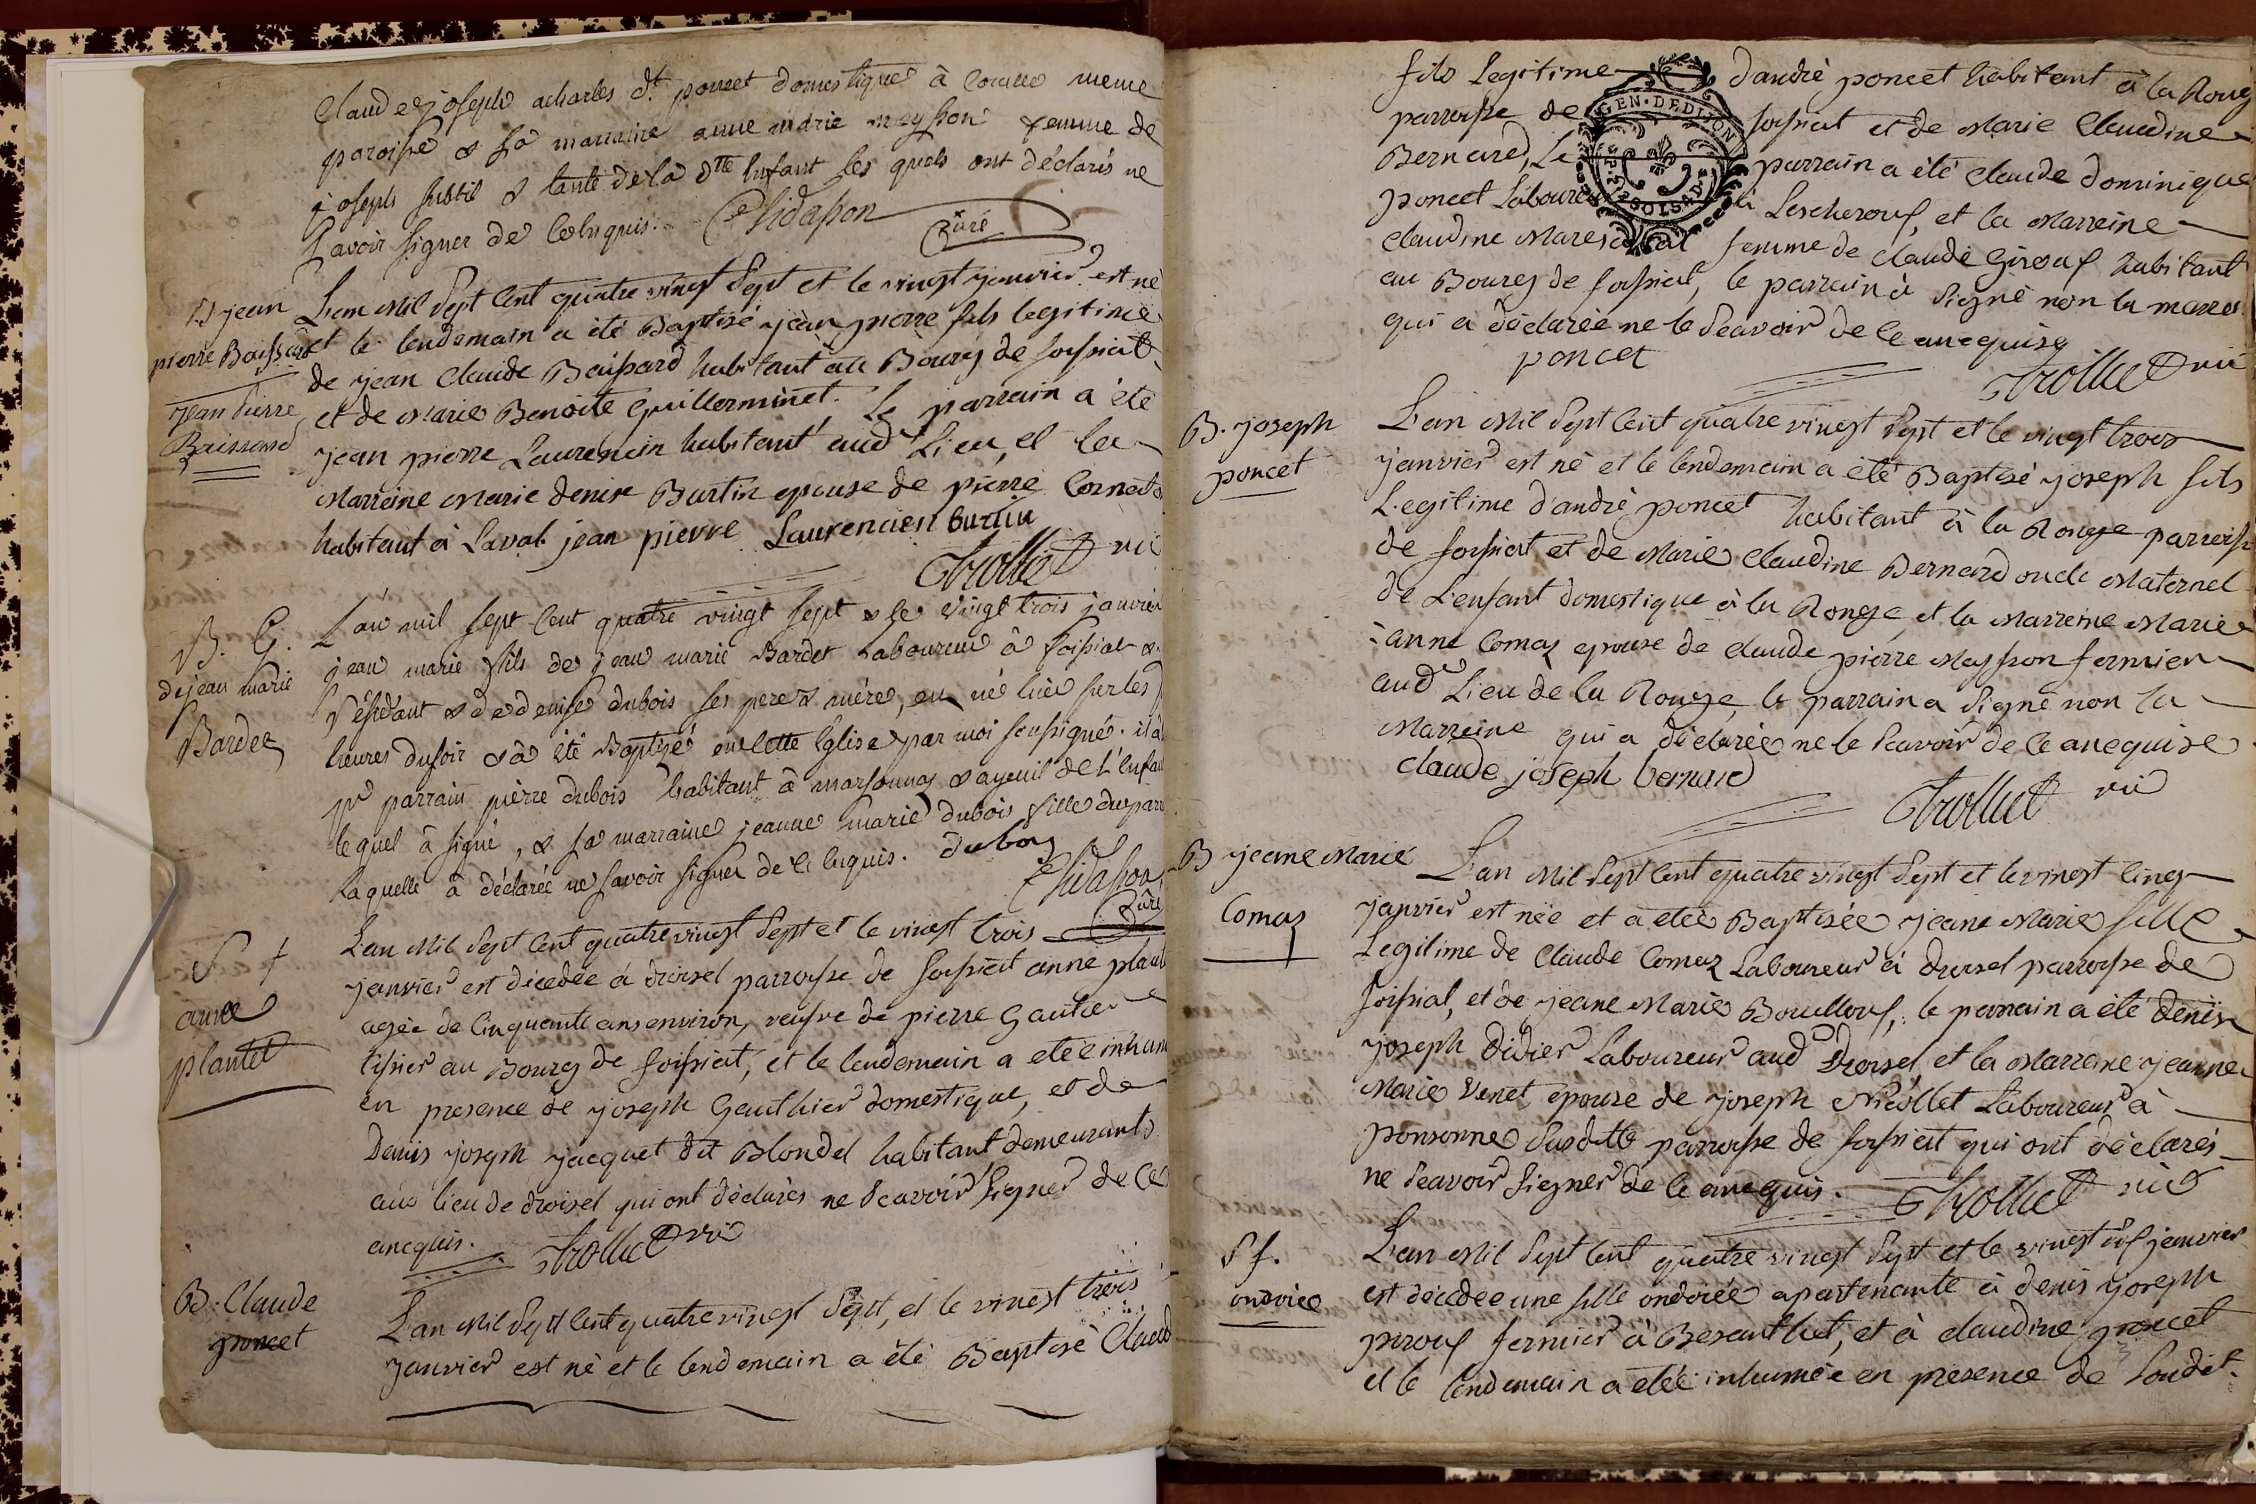 Claude joseph acharles dt. poncet domestique à Cornae meme
paroisse & sa marraine anne marie meysson femme de
joseph subtil & tante de la dtte Enfant les quels ont déclarés ne
savoir signer de Ce Enquis. Chidasson
Curé
B jean
pierre Baissard
jean Pierre
Baissard
L'an Mil Sept Cent quatre vingt Sept et le vingt janvier est né
et le lendemain a été Baptisé jean pierre fils legitime
de jean Claude Baissard habitant au Bourg de foissiat
et de Marie Benoite Guillerminet. Le parrain a été
jean pierre Laurencin habitant aud Lieu, et la
Marreine Marie denise Burtin epouse de pierre Cornato
habitant à Laval jean pierre Laurencien burtin
Trollict vic
B. G.
de jean marie
Bardet
L'an mil sept Cent quatre vingt sept & le vingt trois janvier
jean marie fils de jean marie Bardet Laboureur à foissiat &
résidant & de denise dubois ses pere & mére, en né hièr sur les
heures du soir & à été Baptisé en Cette Eglise par moi soussigné. il a
pr parrain pierre dubois habitant à marsonnas & ayeuil de L'Enfant
lequel à signé, & sa marraine jeanne marie dubois fille du parr
laquelle à déclarée ne savoir signer de Ce Enquis. dubois
Chidasson
Curé
S f
anne
plantet
L'an Mil Sept Cent quatre vingt Sept et le vingt trois
janvier est décédée à droisel parroisse de foissiat anne plant
agée de Cinquante ans environ, veufve de pierre Gautier
tissier au Bourg de foissiat, et le lendemain a eteé inhum
en presence de joseph Gauthier domestique, et de
Denis joseph jacquet dit Blondel habitant demeurants
aud lieu de droisel qui ont déclarés ne Scavoir Signer de Ce
enequis.
Trollict vic
B. Claude
poncet
L'an Mil Sept Cent quatre vingt Sept, et le vingt trois
janvier est né et le lendemain a été Baptisé Claud
fils Legitime d'andré poncet habitant à la Roug
parroisse de foissiat et de Marie Claudine
GEN. DE DIJON
2. SOLS
Bernard, Le parrain a été Claude Dominique
poncet Laboureur à Lescheroux, et la Marreine
Claudine Marescal femme de Claude Giroud habitant
au Bourg de foissiat, le parrain à Signé non la marrei
qui a déclarée ne le Scavoir de Ce anequise
poncet
Trollict vic
B. joseph
poncet
L'an Mil Sept Cent quatre vingt Sept et le vingt trois
janvier est né et le lendemain a été Baptisé joseph fils
Legitime d'andré poncet habitant à la Rouge parroisse
de foissiat et de Marie Claudine Bernard oncle Maternel
de L'enfant domestique à la Rouge, et la Marreine Marie
anne Comaz epouse de Claude pierre Maysson fermier
aud Lieu de la Rouge, le parrain a Signé non la
Marreine qui a déclarée ne le Scavoir de Ce anequise
claude joseph bernard
Trollict vic
B jeane Marie
Comaz
L'an Mil Sept Cent quatre vingt Sept et le vingt Cinq
janvier est née et a eteé Baptisée jeane Marie fille
Legitime de Claude Comaz Laboureur à droisel parroisse de
foissiat, et de jeane Marie Bouilloux, le parrain a été Denis
joseph Didier Laboureur aud Droisel, et la Marreine jeanne
Marie Venet epouse de joseph Nicollet Laboureur à
ponsonne Susditte parroisse de foissiat qui ont déclarés
ne Scavoir Signer de Ce anequis.
Trollict vic
S f.
ondoiée
L'an Mil Sept Cent quatre vingt Sept et le vingt six janvier
est décédée une fille ondoiée apartenante à denis joseph
piroux fermier à Besanthet, et à Claudine poncet
et le lendemain a eteé inhumée en presence de Soudit.